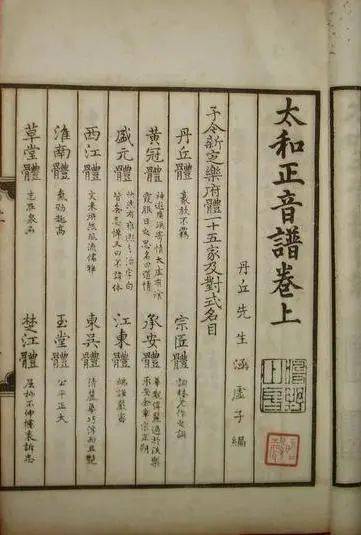 太和正音譜卷上
丹丘先生涵虛子編
予今新定樂府體一十五家及對式名目
丹丘體
豪放不羈
宗匠體
詞林老作之詞
黃冠體
神遊廣漠寄情太虛有餐
霞服日之思名曰道情
承安體
華觀偉麗過於泆樂
承安金章宗正朔
盛元體
快然有雍熙之治字句
皆無忌憚又曰不諱體
江東體
端謹嚴密
西江體
文采煥然風流儒雅
東吳體
清麗華巧浮而且艷
淮南體
氣勁趣高
玉堂體
公平正大
草堂體
志在泉石
楚江體
屈抑不伸攄衷訴志